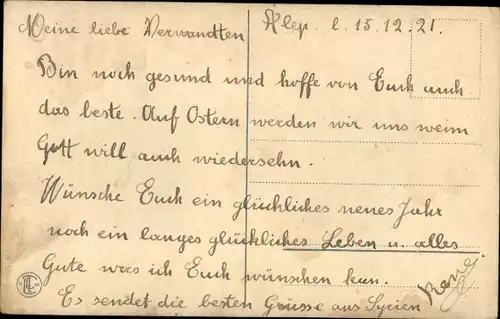 Meine liebe Verwandten
Alep. l. 15.12.21.
Bin noch gesund und hoffe von Euch auch
das beste. Auf Ostern werden wir uns wenn
Gott will auch wiedersehn.
Wünsche Euch ein glückliches neues Jahr
noch ein langes glückliches Leben u. alles
Gute was ich Euch wünschen kan.
Es sendet die besten Grüsse aus Syrien
René